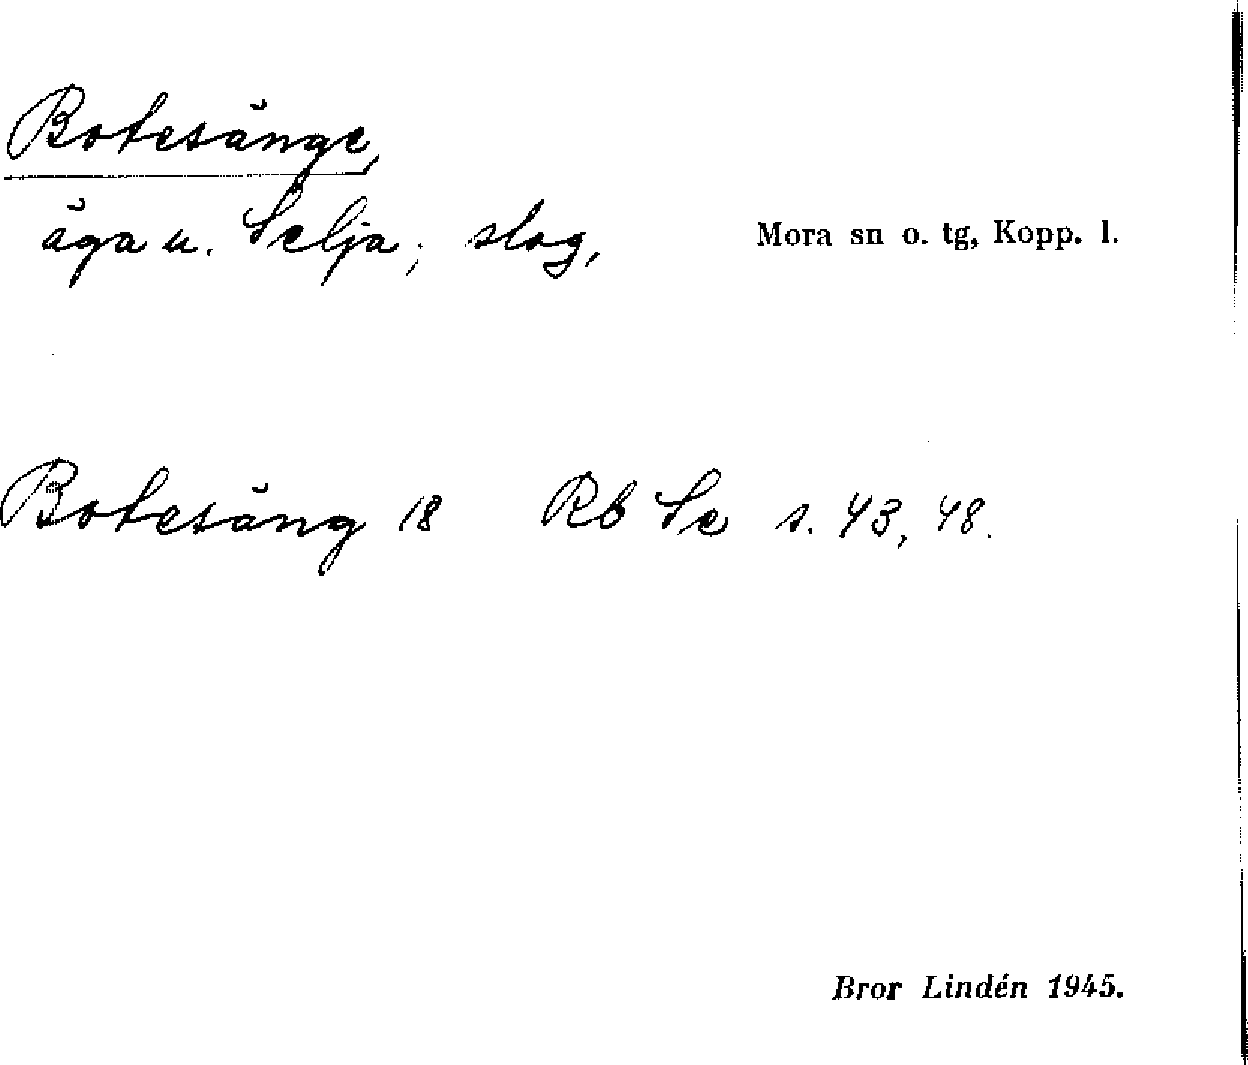 Botesänge,
äga u. Selja; slog,
Mora sn o. tg, Kopp. l.
Botesäng 18 Rb Se s. 43, 48.
Bror Lindén 1945.